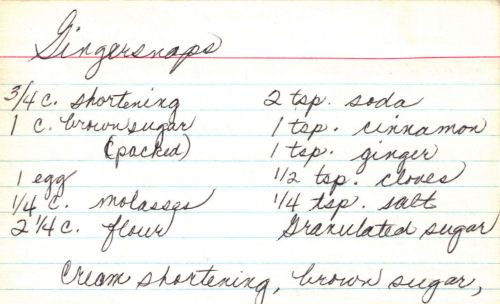 Gingersnaps
3/4 c. shortening
1 c. brown sugar
(packed)
1 egg
1/4 c. molasses
2 1/4 c. flour
2 tsp. soda
1 tsp. cinnamon
1 tsp. ginger
1/2 tsp. cloves
1/4 tsp. salt
Granulated sugar
Cream shortening, brown sugar,